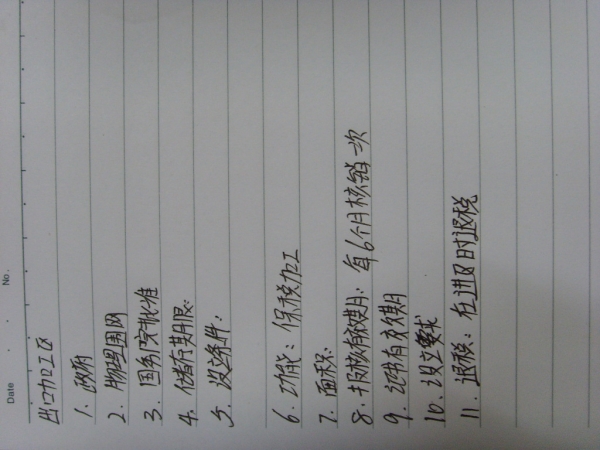 No.
Date
出口加工区
1. 政府
2. 物理围网
3. 国务院批准
4. 储存期限:
5. 设立条件:
6. 功能: 保税加工
7. 面积:
8. 报核有效期: 每6个月核销一次
9. 证书有效期
10. 设立要求
11. 退税: 在进区时退税